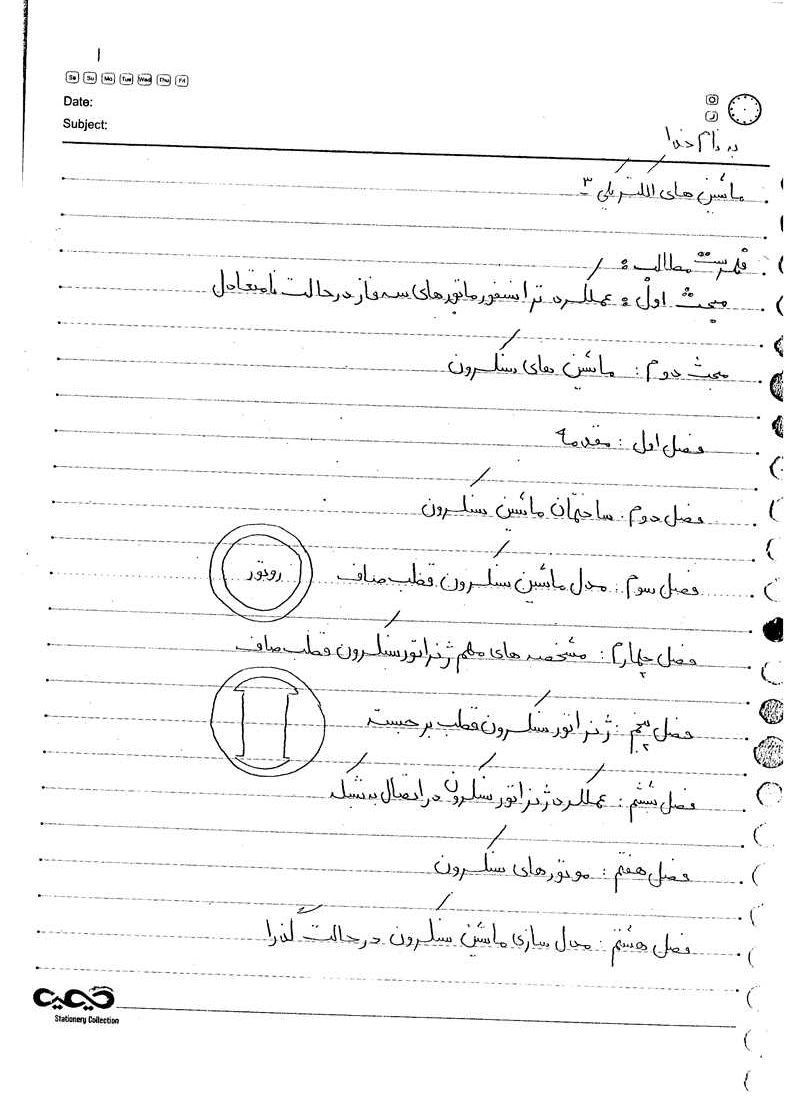 1
Sa Su Mo Tue Wed Thu Fri
Date:
Subject:
به نام خدا
ماشین های الکتریکی ۳
فهرست مطالب :
مبحث اول : عملکرد ترانسفورماتورهای سه فاز در حالت نامتعادل
مبحث دوم : ماشین های سنکرون
فصل اول : مقدمه
فصل دوم : ساختمان ماشین سنکرون
فصل سوم : مدل ماشین سنکرون قطب صاف
روتور
فصل چهارم : مشخصه های مهم ژنراتور سنکرون قطب صاف
فصل پنجم : ژنراتور سنکرون قطب برجسته
فصل ششم : عملکرد ژنراتور سنکرون در اتصال به شبکه
فصل هفتم : موتورهای سنکرون
فصل هشتم : مدل سازی ماشین سنکرون در حالت گذرا
Stationery Collection